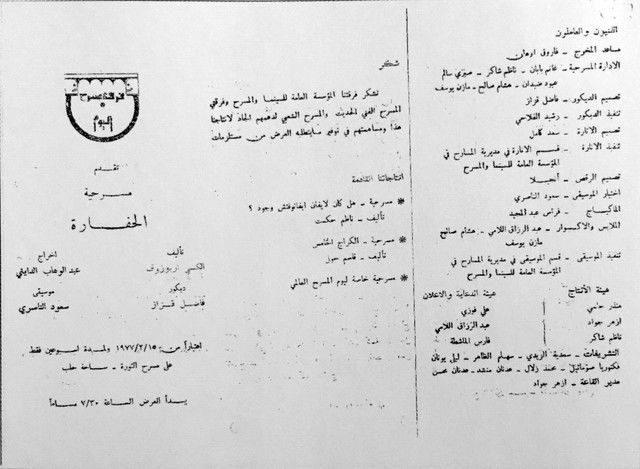 الفنيون والعاملون
مساعد المخرج – فاروق اوهان
الادارة المسرحية – غانم بابان – ناظم شاكر – صبري سالم
عبود ضيدان – هشام صالح – مازن يوسف
تصميم الديكور – فاضل قزاز
تنفيذ الديكور – رشيد الفلاحي
تصميم الانارة – سعد كامل
تنفيذ الانارة – قسم الانارة في مديرية المسارح في
المؤسسة العامة للسينما والمسرح
تصميم الرقص – أنجيلا
اختيار الموسيقى – سعود الناصري
الماكياج – فراس عبد المجيد
الملابس والاكسسوار – عبد الرزاق اللامي – هشام صالح
مازن يوسف
تنفيذ الموسيقى – قسم الموسيقى في مديرية المسارح في
المؤسسة العامة للسينما والمسرح
هيئة الأنتاج
منذر حلمي
ازهر جواد
ناظم شاكر
هيئة الدعاية والاعلان
علي فوزي
عبد الرزاق اللامي
فارس الماشطة
التشريفات – سعدية الزيدي – سهام الظاهر – ليل يونان
فكتوريا – محمد زلال – عدنان منشد – عدنان محسن
مدير القاعة – ازهر جواد
شكر
تشكر فرقتنا المؤسسة العامة للسينما والمسرح وفرقتي
المسرح الفني الحديث والمسرح الشعبي لدعمهم الجاد لانتاجنا
هذا ومساهمتهم في توفير مايتطلبه العرض من مستلزمات
انتاجاتنا القادمة
* مسرحية – هل كان لايفان ايفانوفتش وجود ؟
تأليف – ناظم حكمت
* مسرحية – الكراج الخامس
تأليف – قاسم حول
* مسرحية خاصة ليوم المسرح العالمي
فرقة مسرح
اليوم
تقدم
مسرحية
الحفارة
تأليف
الكسي اربوزوف
اخراج
عبد الوهاب الدايني
ديكور
فاضل قزاز
موسيقى
سعود الناصري
اعتباراً من ١٩٧٧/٢/١٥ ولمدة اسبوعين فقط
على مسرح الثورة – ساحة حلب
يبدأ العرض الساعة ٧/٣٠ مساءاً